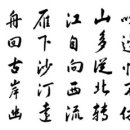 山多從北轉
江自向西流
雁下沙汀遠
舟回古岸幽